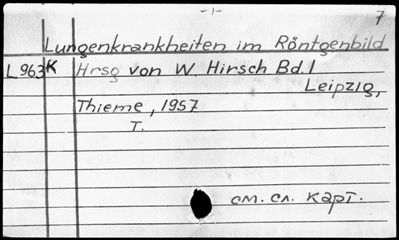 -1-
7
Lungenkrankheiten im Röntgenbild
L 963 K Hrsg von W. Hirsch Bd. 1
Leipzig,
Thieme, 1957
T.
см. сл. карт.